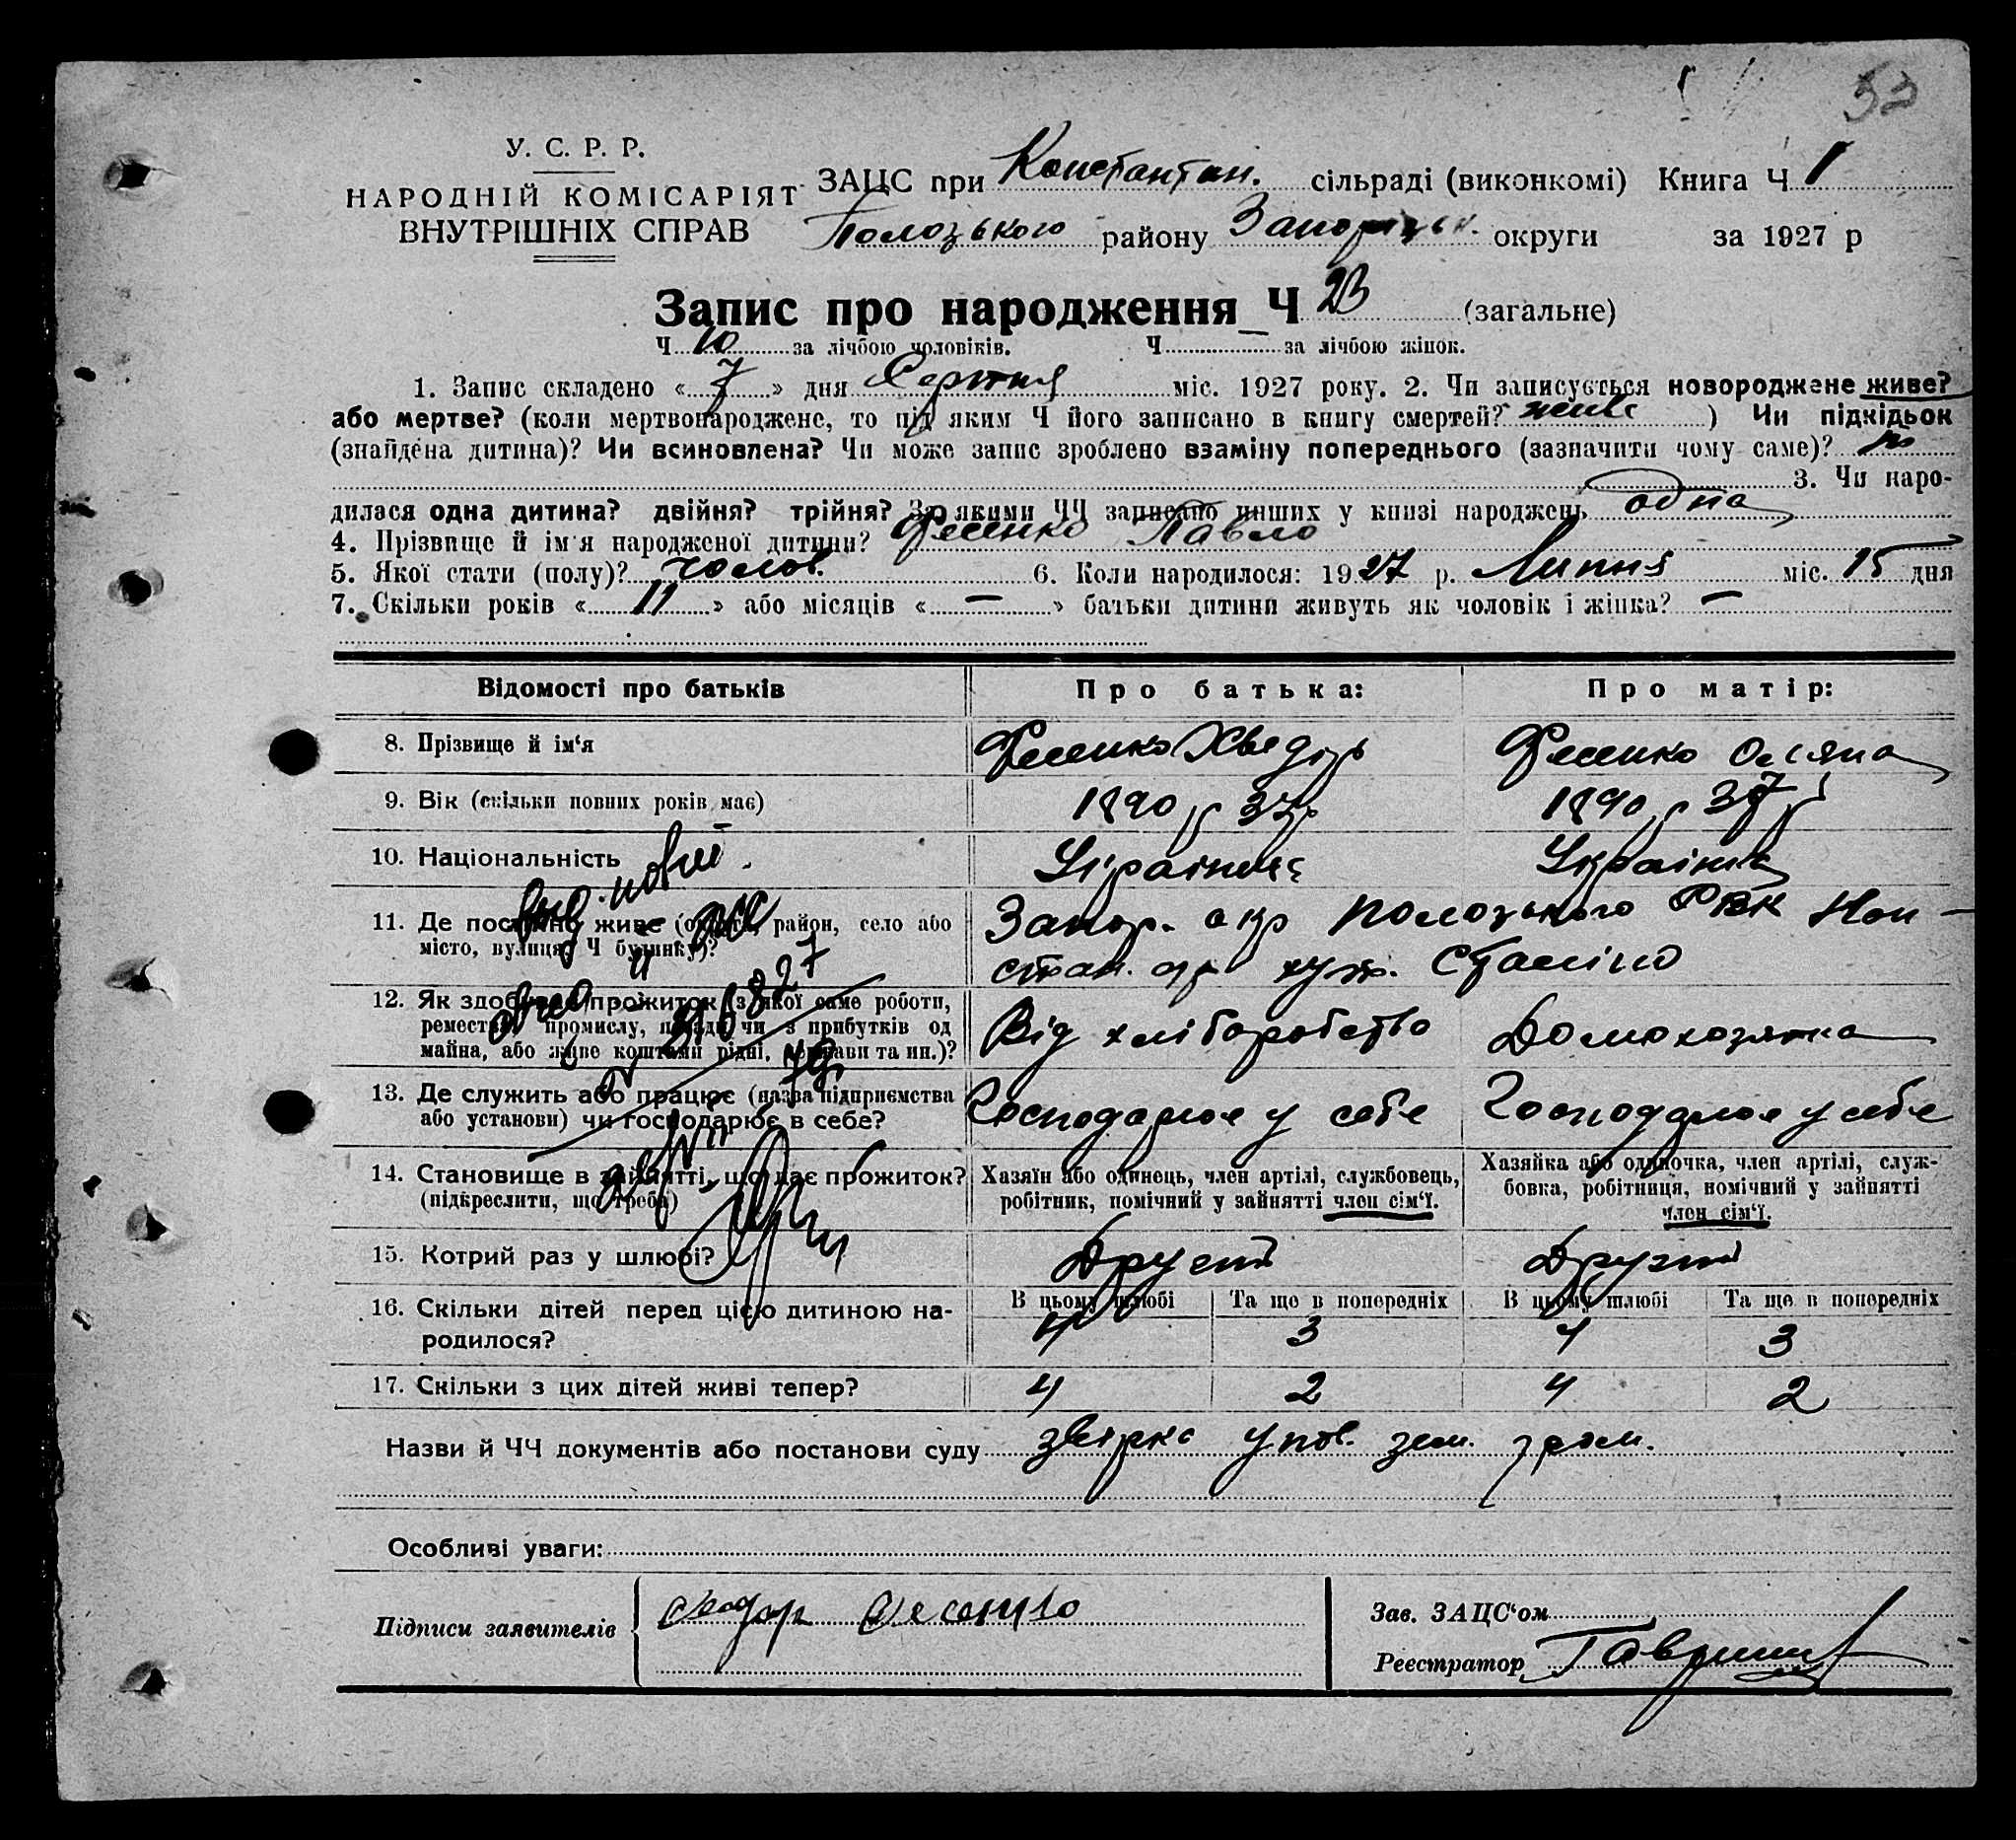 53
У. С. Р. Р.
НАРОДНІЙ КОМІСАРІЯТ
ВНУТРІШНІХ СПРАВ
ЗАЦС при Константин. сільраді (виконкомі) Книга Ч 1
Полозького району Запорізьк. округи за 1927 р
Запис про народження Ч 23 (загальне)
Ч 10 за лічбою чоловіків. Ч — за лічбою жінок.
1. Запис складено « 7 » дня Серпня міс. 1927 року. 2. Чи записується новороджене живе?
або мертве? (коли мертвонароджене, то під яким Ч його записано в книгу смертей? живе ) Чи підкідьок
(знайдена дитина)? Чи всиновлена? Чи може запис зроблено взаміну попереднього (зазначити чому саме)?
3. Чи наро-
дилася одна дитина? двійня? трійня? За якими ЧЧ записано инших у книзі народжень одна
4. Прізвище й ім'я народженої дитини? Фесенко Павло
5. Якої стати (полу)? чолов. 6. Коли народилося: 1927 р. Липня міс. 15 дня
7. Скільки років « 11 » або місяців « — » батьки дитини живуть як чоловік і жінка? —
Відомості про батьків Про батька: Про матір:
8. Прізвище й ім'я Фесенко Хведір Фесенко Оляна
9. Вік (скільки повних років має) 1890 р 37р 1890 р 37 р
10. Національність Українець Українка
11. Де постійно живе (округа, район, село або
місто, вулиця, Ч будинку)?
Запор. окр Полозького РВК Кон-
стан. с/р хут. Сталіно
12. Як здобуває прожиток (з якої саме роботи,
ремества, промислу, посади чи з прибутків од
майна, або живе коштами рідні, держави та ин.)?
Від хліборобство Домохозяйка
13. Де служить або працює (назва підприємства
або установи) чи господарює в себе?
Господарює у себе Господарює у себе
14. Становище в зайнятті, що дає прожиток?
(підкреслити, що треба)
Хазяїн або одинець, член артілі, службовець,
робітник, помічний у зайнятті член сім'ї.
Хазяйка або одиночка, член артілі, служ-
бовка, робітниця, помічний у зайнятті
член сім'ї.
15. Котрий раз у шлюбі? Другий Другий
16. Скільки дітей перед цією дитиною на-
родилося?
В цьому шлюбі Та ще в попередніх В цьому шлюбі Та ще в попередніх
4 3 4 3
17. Скільки з цих дітей живі тепер? 4 2 4 2
Назви й ЧЧ документів або постанови суду звірка упов. зем. гром.
Особливі уваги:
Підписи заявителів Федор Фесенко
Зав. ЗАЦС'ом
Реєстратор